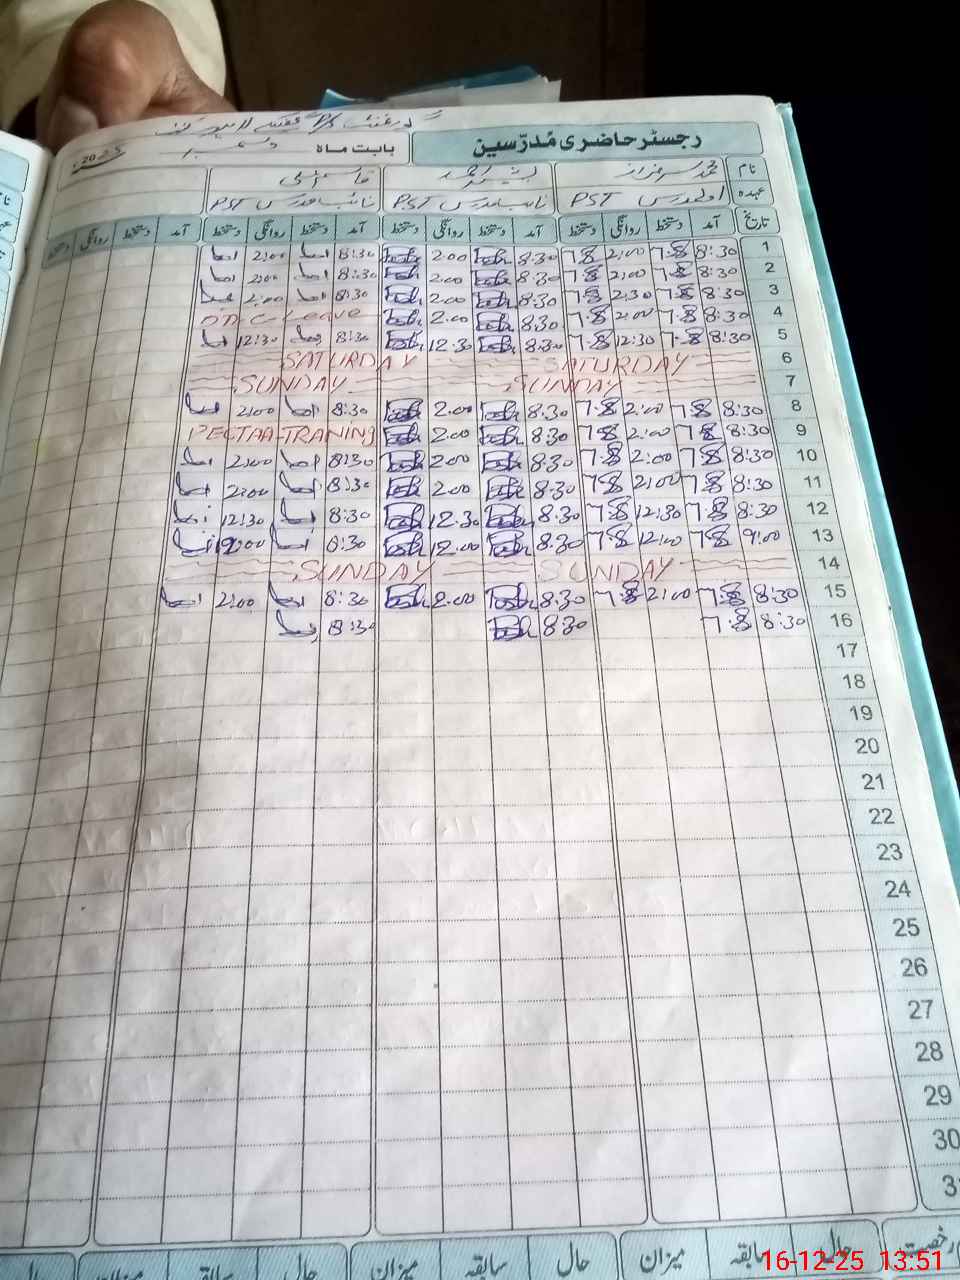 رجسٹر حاضری مُدرّسین
بابت ماہ دسمبر 2025
نام محمد سرفراز بشیر احمد
عہدہ اول مدرس PST نائب مدرس PST نائب مدرس PST
تاریخ آمد دستخط روانگی دستخط آمد دستخط روانگی دستخط آمد دستخط روانگی دستخط آمد دستخط روانگی دستخط
1 8:30 2:00 8:30 2:00 8:30 2:00
2 8:30 2:00 8:30 2:00 8:30 2:00
3 8:30 2:30 8:30 2:00 8:30 2:00
4 8:30 2:00 8:30 2:00 on C Leave
5 8:30 12:30 8:30 12:30 8:30 12:30
6 SATURDAY SATURDAY
7 SUNDAY SUNDAY
8 8:30 2:00 8:30 2:00 8:30 2:00
9 8:30 2:00 8:30 2:00 PECTAA TRANING
10 8:30 2:00 8:30 2:00 8:30 2:00
11 8:30 2:00 8:30 2:00 8:30 2:00
12 8:30 12:30 8:30 12:30 8:30 12:30
13 9:00 12:00 8:30 12:00 8:30 12:00
14 SUNDAY SUNDAY
15 8:30 2:00 8:30 2:00 8:30 2:00
16 8:30 8:30 8:30
17
18
19
20
21
22
23
24
25
26
27
28
29
30
رخصت حال سابقہ میزان حال سابقہ میزان حال سابقہ
16-12-25 13:51